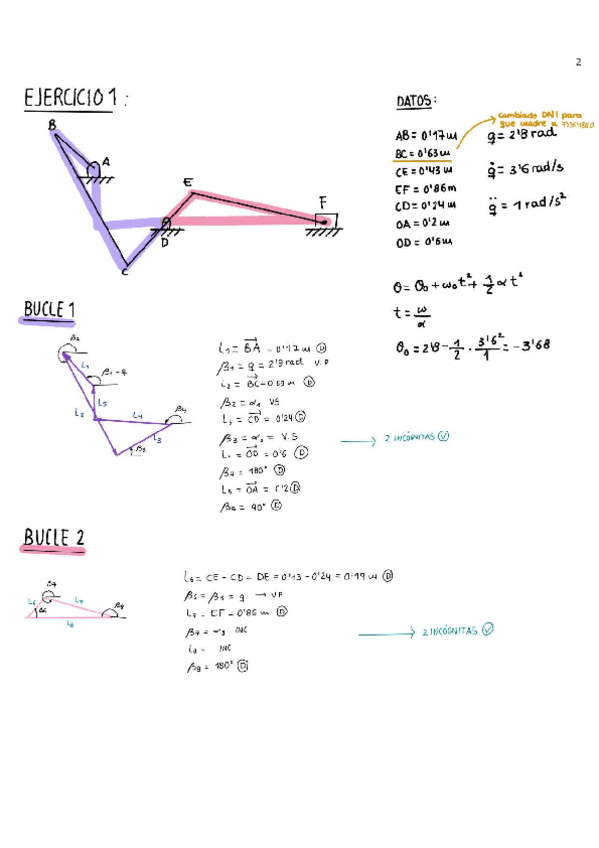 2
EJERCICIO 1:
B
A
E
F
D
C
DATOS:
Cambiado DNI para
que cuadre a
AB = 0'17 m
BC = 0'63 m
CE = 0'43 m
EF = 0'86 m
CD = 0'24 m
OA = 0'2 m
OD = 0'6 m
q = 2'8 rad
q̇ = 3'6 rad/s
q̈ = 1 rad/s²
θ = θ₀ + ω₀t² + 1/2 α t²
t = ω/α
θ₀ = 2'8 - 1/2 · 3'6²/1 = -3'68
BUCLE 1
β₂
L₁
β₁ = q
L₅
L₂
L₄
β₄
L₃
β₃
L₁ = BA = 0'17 m D
β₁ = q = 2'8 rad V.P
L₂ = BC = 0'63 m D
β₂ = α₁ V.S
L₃ = CD = 0'24 D
β₃ = α₂ = V.S
L₄ = OD = 0'6 D
β₄ = 180° D
L₅ = OA = 0'2 D
β₅ = 90° D
2 INCÓGNITAS
BUCLE 2
β₇
L₆
L₇
β₆
β₈
L₈
L₆ = CE - CD = DE = 0'43 - 0'24 = 0'19 m D
→ V.P
L₇ = EF = 0'86 m D
β₇ = α₃ INC
L₈ = INC
β₈ = 180° D
2 INCÓGNITAS